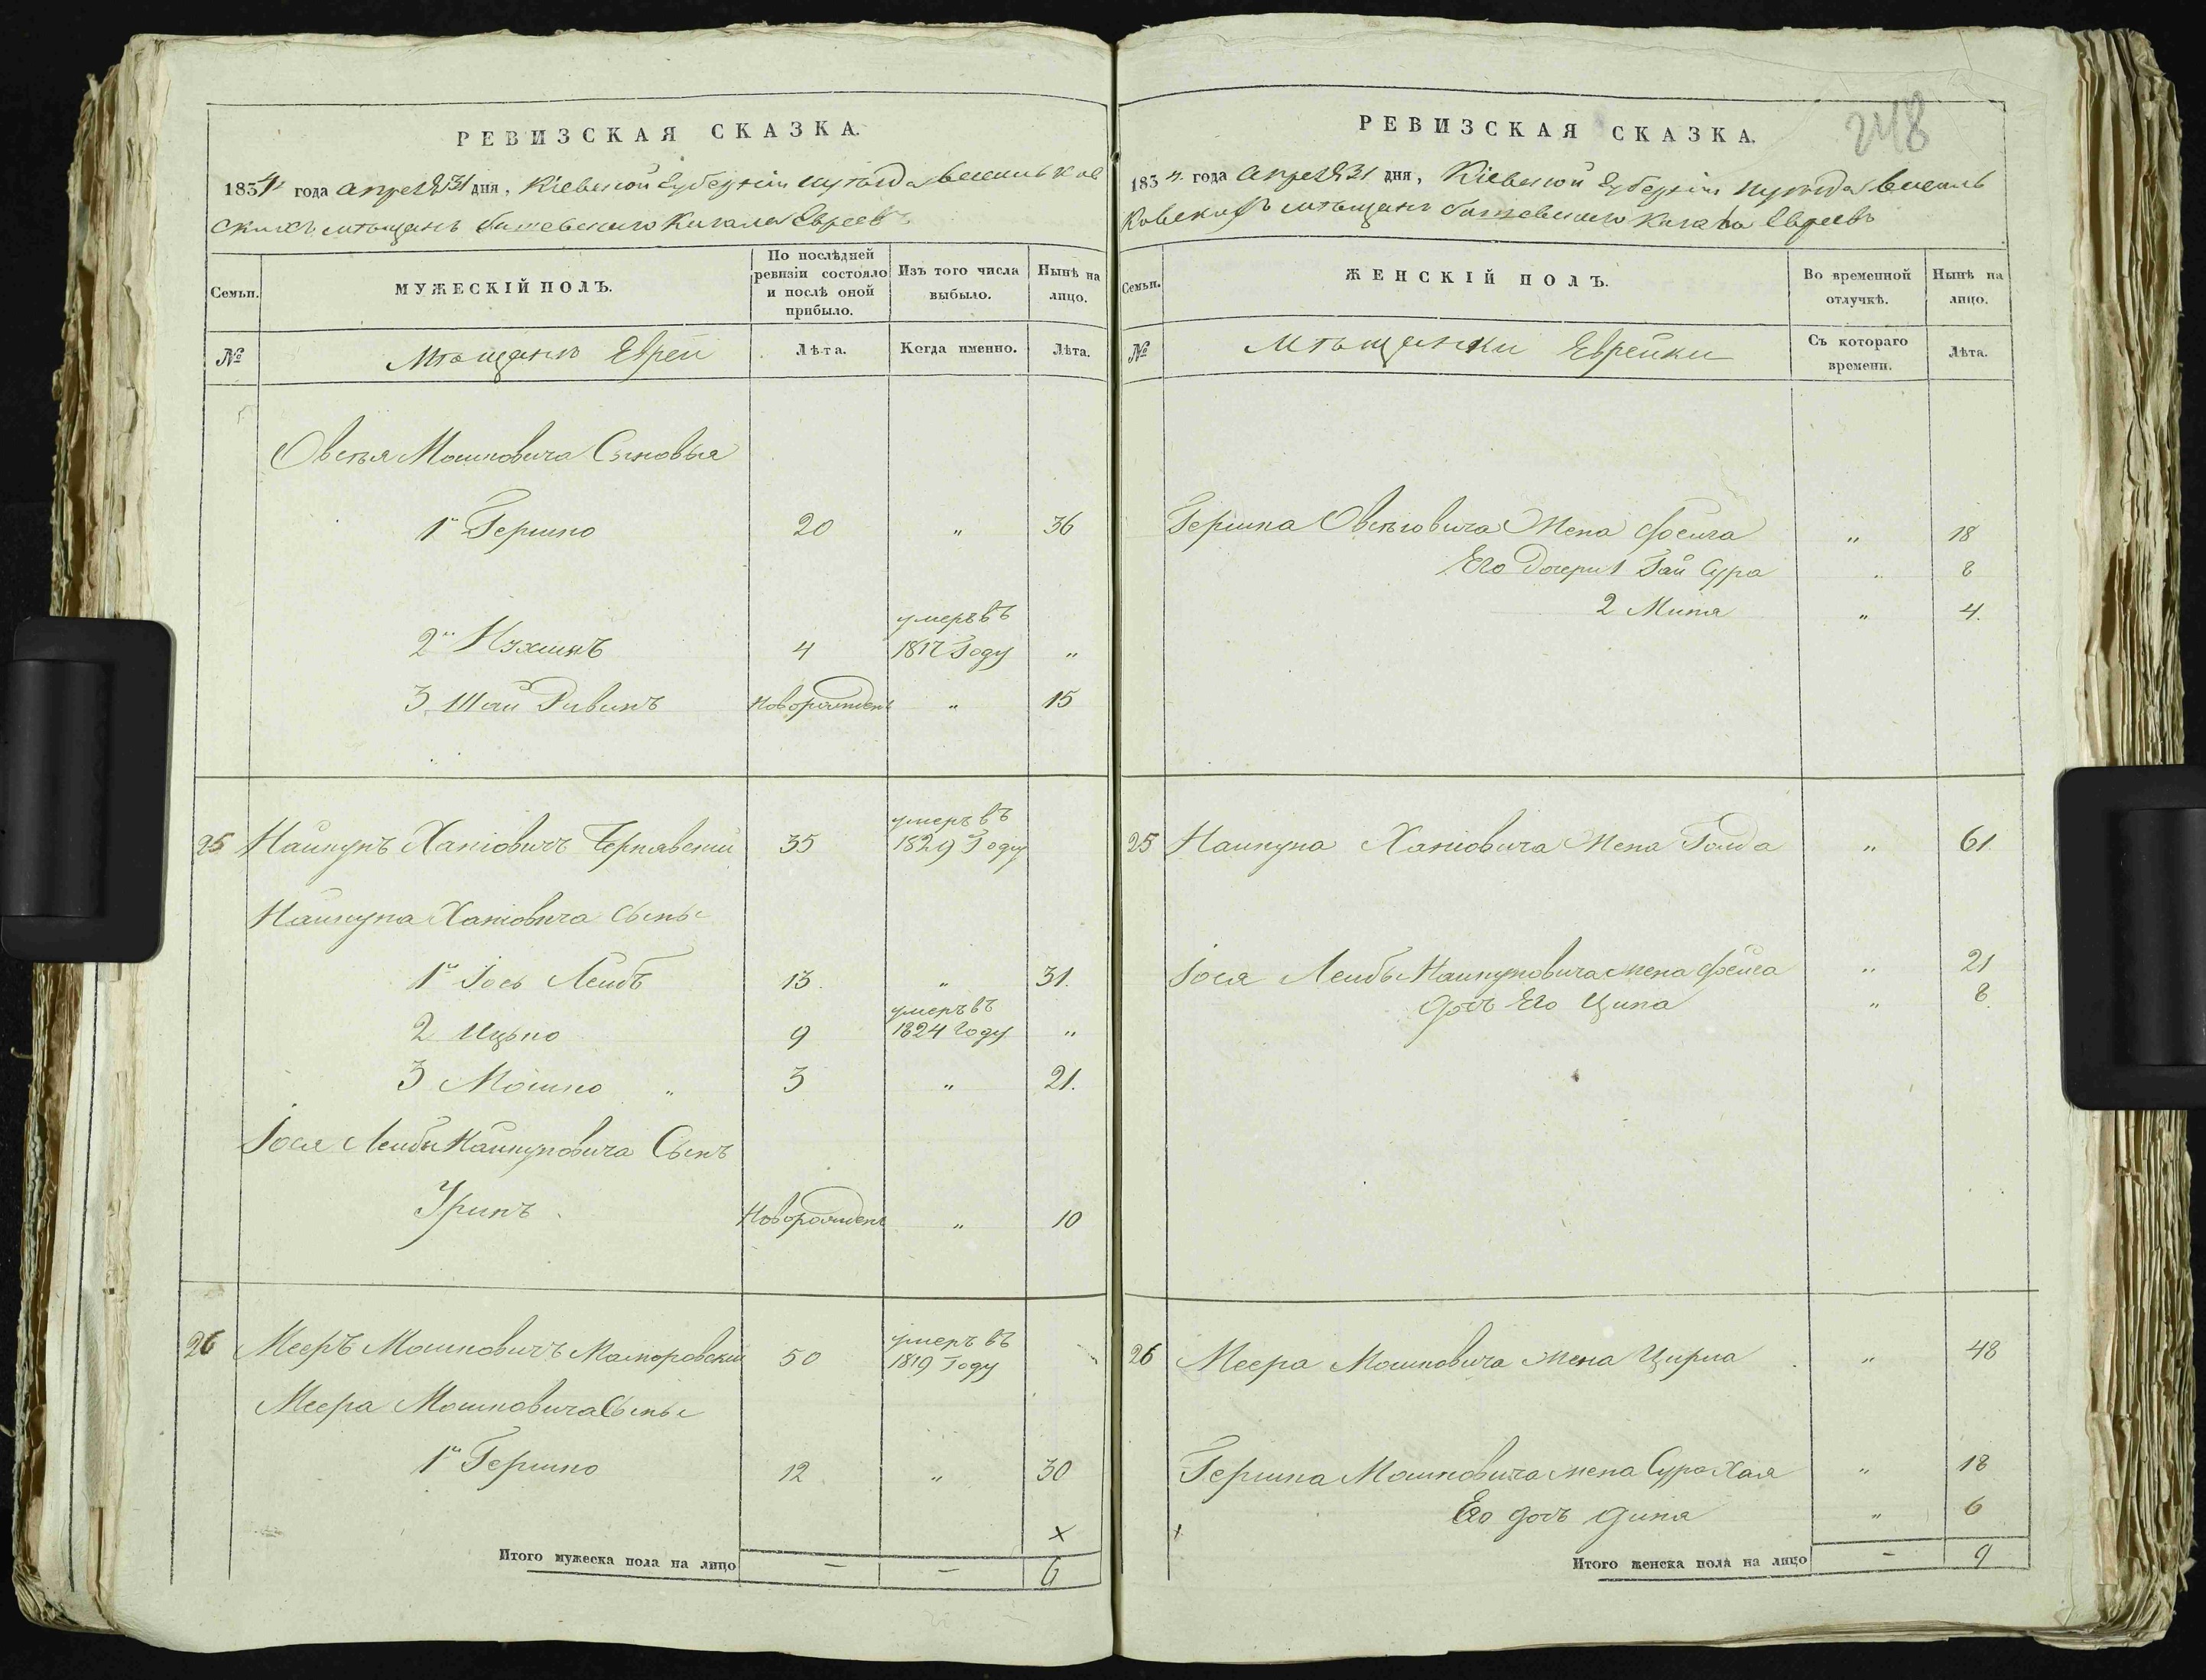 РЕВИЗСКАЯ СКАЗКА.
1834 года апреля 31 дня, Кіевской Губерніи
скихъ мѣщанъ Кагала Евреевъ
Семьи.
МУЖЕСКІЙ ПОЛЪ.
По послѣдней ревизіи состояло и послѣ оной прибыло.
Изъ того числа выбыло.
Нынѣ на лицо.
№
Мѣщанъ Евреи
Лѣта.
Когда именно.
Лѣта.
Овсѣя Мошковича Сыновья
1й Гершко 20 " 36
2й Нухимъ 4 умеръ въ 1817 Году "
3 Шай Ривинъ Новорожденъ " 15
25 Хаиовичъ Чернявскій 35 умеръ въ 1829 Году
Хаиовича Сыны
1й Іось Лейбъ 13. " 31.
2 Ицько 9 умеръ въ 1824 Году "
3 Мошко " 3 " 21.
Іося Лейбы Сынъ
Урипъ Новорожденъ " 10
26 Мееръ Мошковичъ 50 умеръ въ 1819 Году
Меера Мошковича Сыны
1й Гершко 12 " 30
х
Итого мужеска пола на лицо — — 6
РЕВИЗСКАЯ СКАЗКА.
248
183 года апреля 31 дня, Кіевской Губерніи
мѣщанъ Кагала Евреевъ
Семьи.
ЖЕНСКІЙ ПОЛЪ.
Во временной отлучкѣ.
Нынѣ на лицо.
№
Мѣщанки Еврейки
Съ котораго времени.
Лѣта.
Гершка Овсѣювича Жена Фейга " 18
Его дочери 1 Хай Сура " 8
2 " 4.
25 Хаиовича Жена Голда " 61.
Іося Лейбы жена Фейга " 21
дочь Его Ципа " 8.
26 Меера Мошковича жена Цирла " 48
Гершка Мошковича жена Сура Хая " 18
Его дочь Дина " 6
х
Итого женска пола на лицо — 9